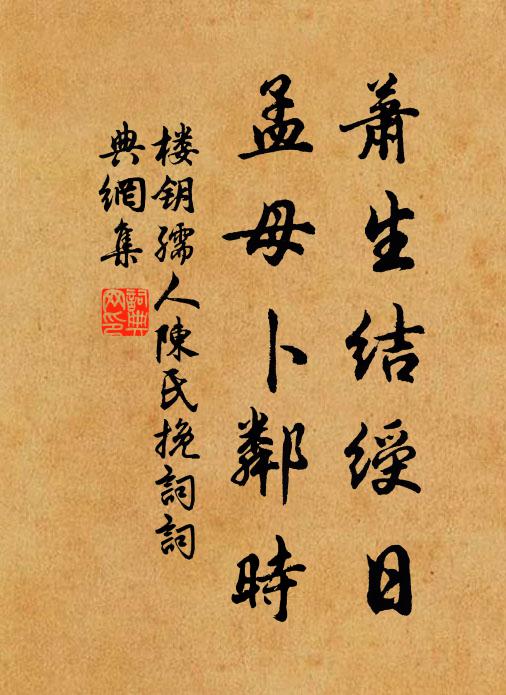 蕭生結綬日
孟母卜鄰時
楼钥孺人陳氏挽詞詞
典網集
詞典網印